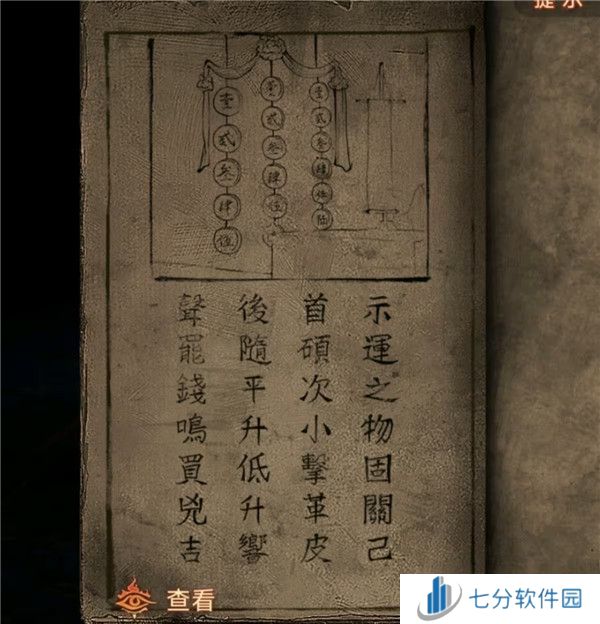 提示
壹貳叁肆伍陆
壹貳叁肆伍
壹貳叁肆伍
示運之物固關己
首碩次小擊革皮
後隨平升低升響
聲罷錢鳴買兇吉
查看
七分软件园